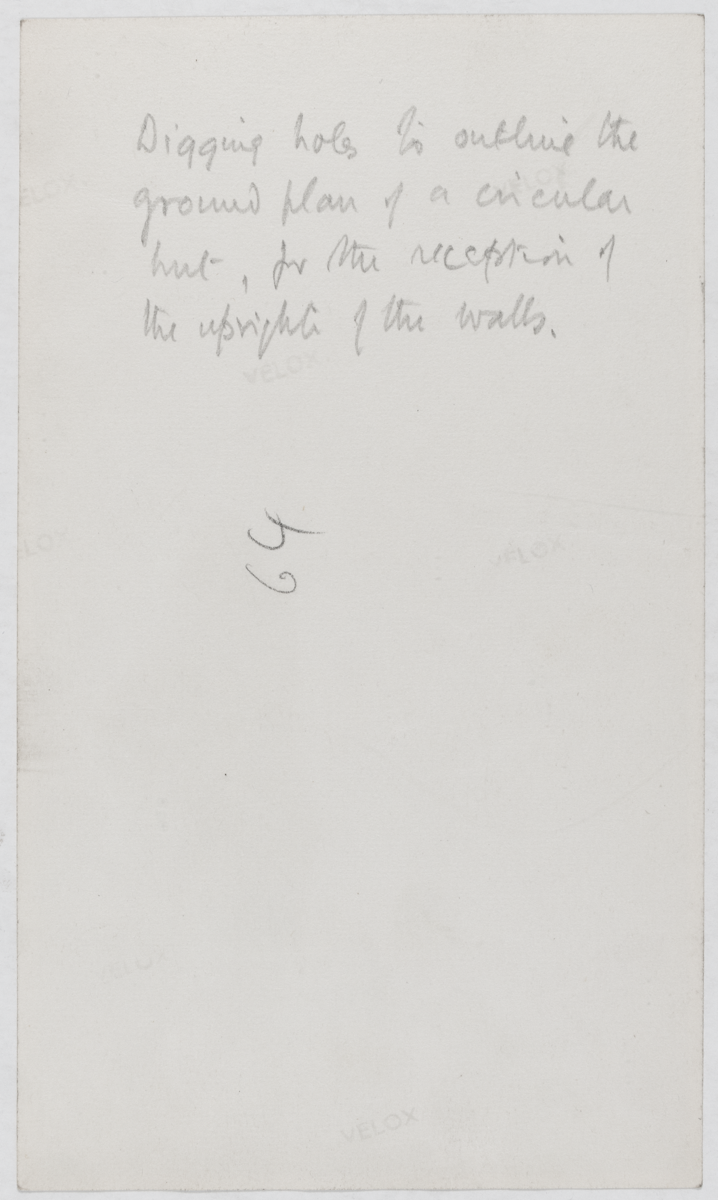 Digging holes to outline the
ground plan of a circular
hut, for the reception of
the uprights of the walls.
64
VELOX
VELOX
VELOX
VELOX
VELOX
VELOX
VELOX